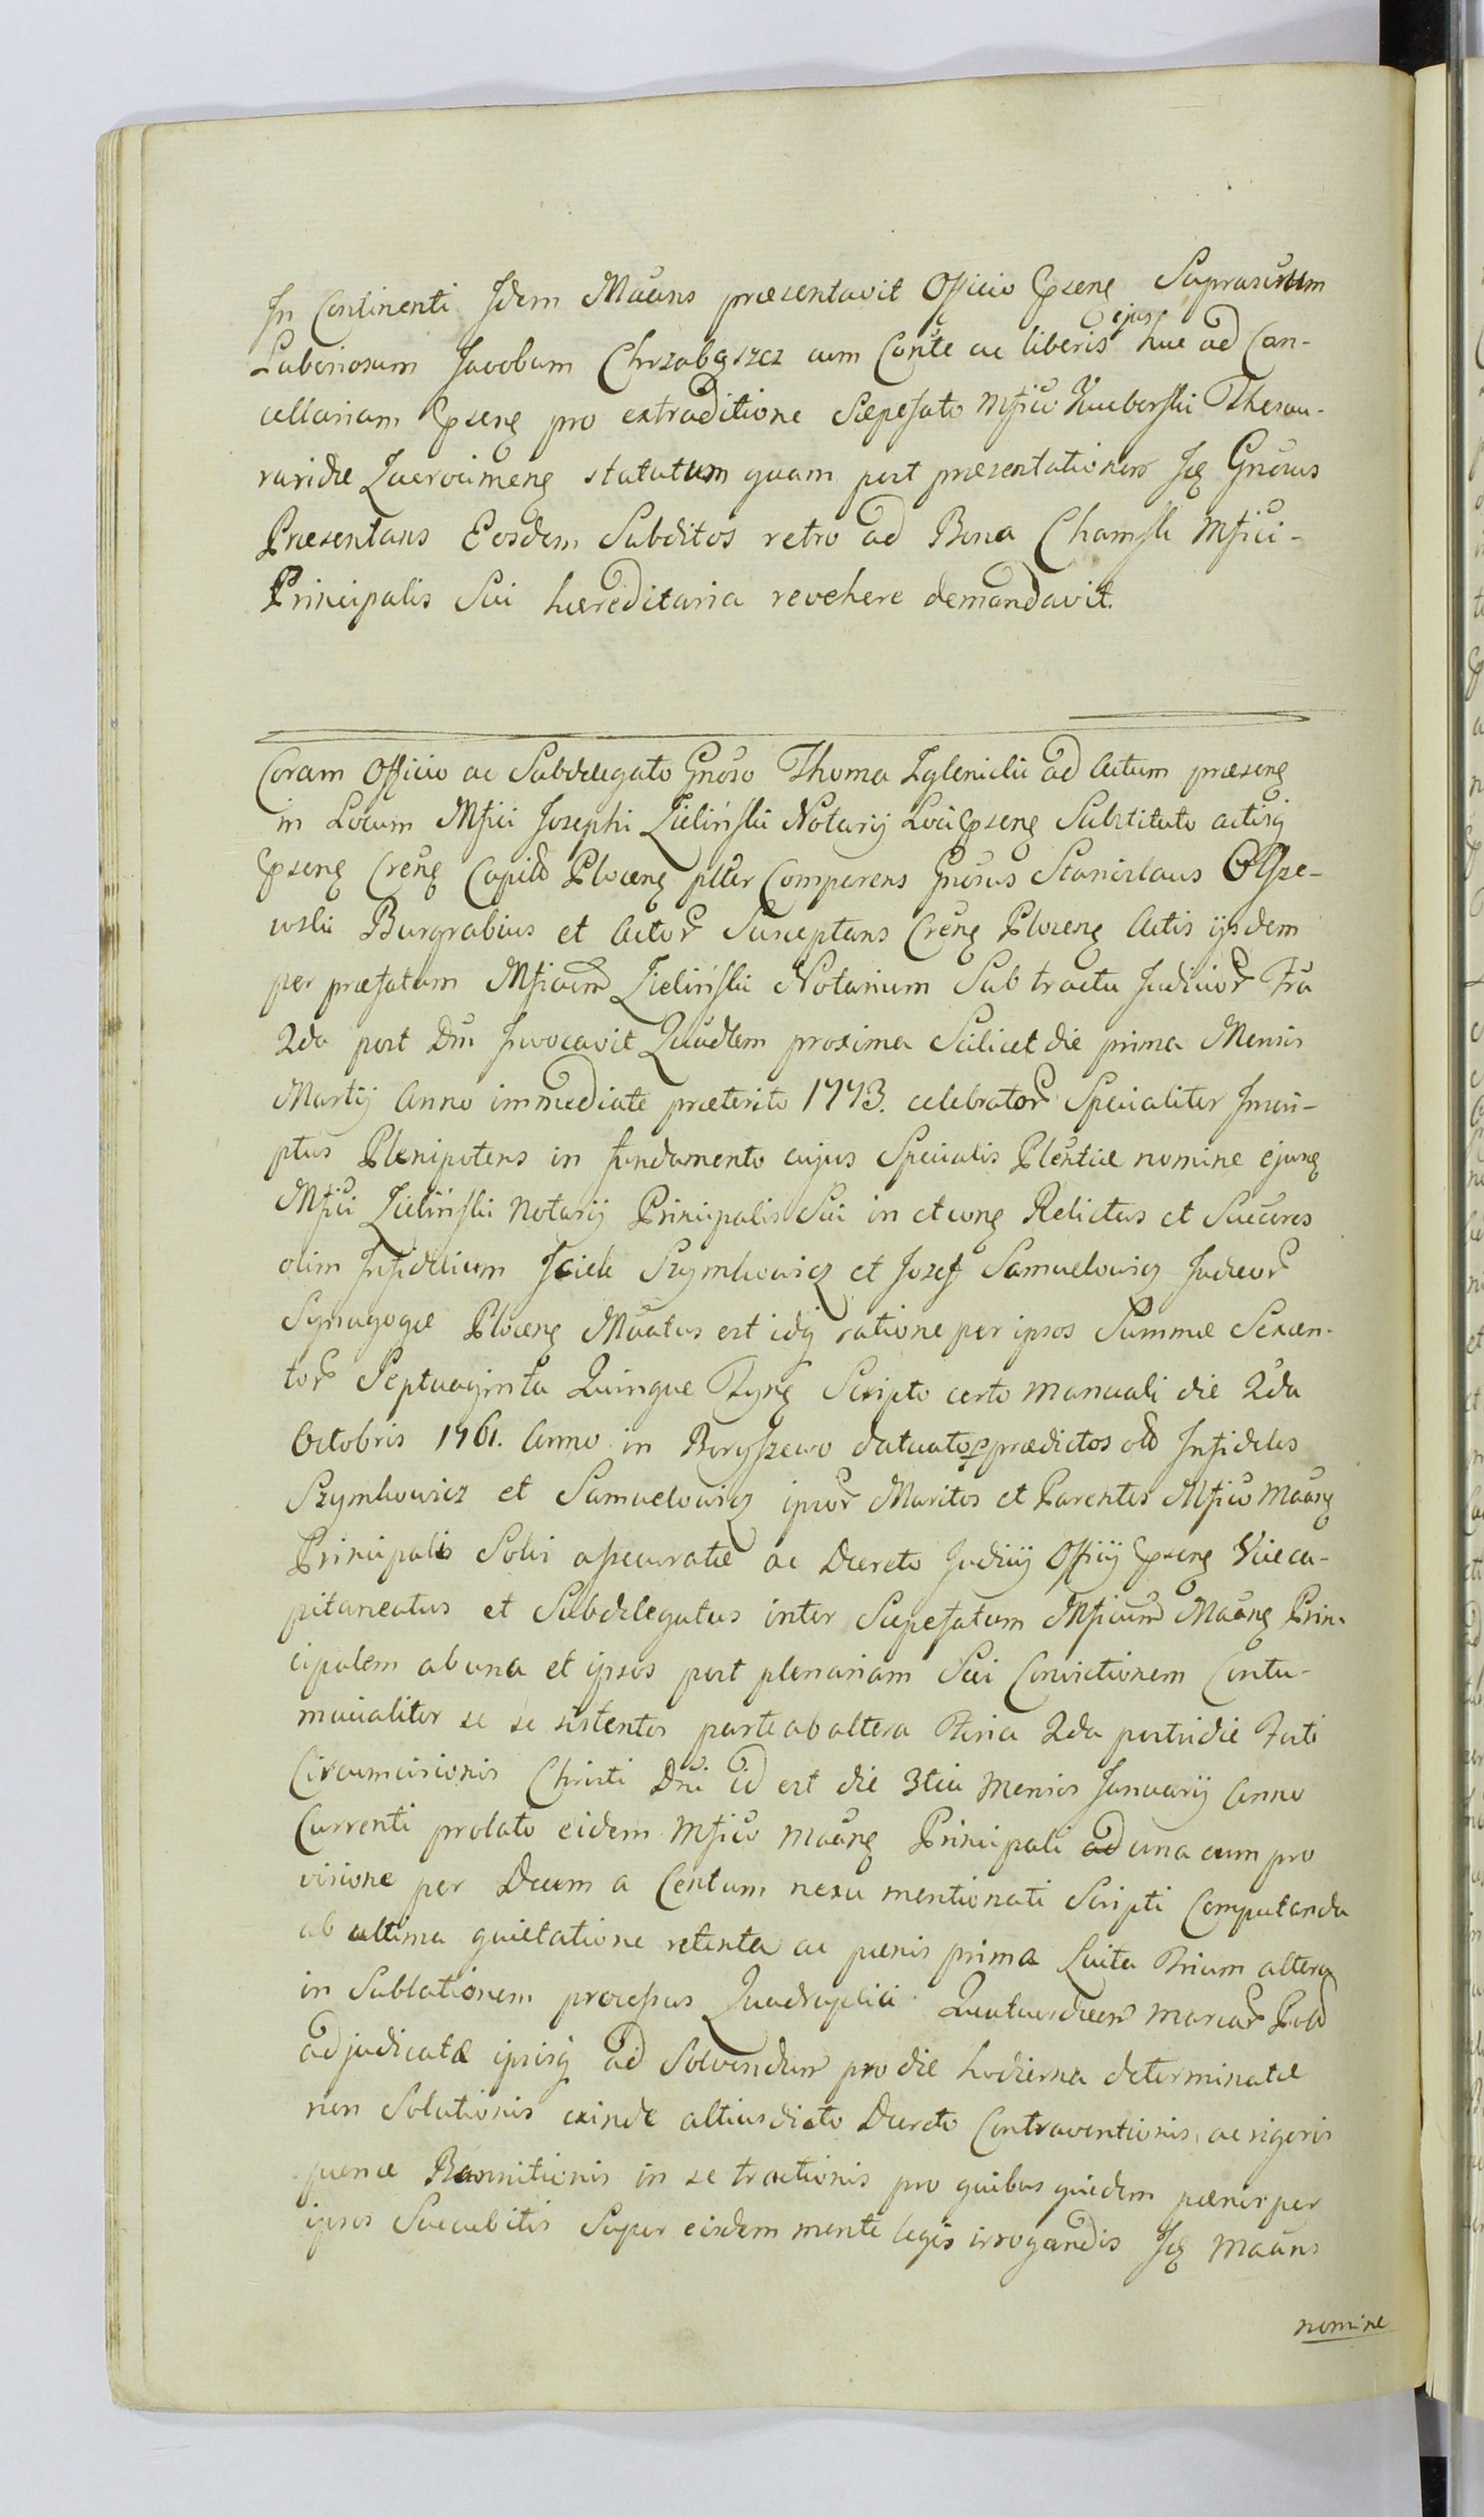 In Continenti Idem Mãans præsentavit Officio Ppseng Suprascritum
Laboriosum Jacobum Chrzabąszcz cum Conte ac liberis ejus huc ad Can-
cellariam Ppseng pro extraditione Sæpefato Mfico Thesau-
raridæ Zacrocimeng statutum quam post præsentationem Idq Gnõsus
Præsentans Eosdem Subditos retro ad Bona Chamsk Mfici-
Principalis Sui hæreditaria revehere demandavit.
Coram Officio ac Subdelegato Gnõso Thoma Zglenicki ad Actum præseng
in Locum Mfici Josephi Zieliński Notarij Loci Ppseng Substituto actisq
Ppseng Creng Capild Ploceng plter Comparens Gnõsus Stanislaus Olsze-
wski Burgrabius et Actor Susceptans Creng Ploceng Actis ijsdem
per præfatum Mficum Zieliński Notarium Sub tractu Judicior Fra
2da post Dm Invocavit Quadlem proxima Scilicet die prima Mensis
Martij Anno immediate præterito 1773. celebrator Specialiter Inscri-
ptus Plenipotens in fundamento cujus Specialis Plentiæ nomine ejusq
Mfici Zieliński Notarij Principalis Sui in et cong Relictas et Succres
olim Infidelium Icick Szymkowicz et Jozef Samuelowicz Judeor
Synagogæ Ploceng Mõatus est idq ratione per ipsos Summæ Sexcen-
tor Septuaginta Quinque Tyng Scripto certo manuali die 2da
Octobris 1761. Anno in Boryszewo datuato p prædictos old Infideles
Szymkowicz et Samuelowicz ipsor Maritos et Parentes Mfico Mõang
Principali Solvi assecuratæ ac Decreto Judicij Officij Ppseng Viceca-
pitaneatus et Subdelegatus inter Sæpefatum Mficum Mãang Prin-
cipalem ab una et ipsos post plenariam Sui Convictionem Contu-
macialiter se se sistentes parte ab altera Feria 2da postridie Festi
Circumcisionis Christi Dni id est die 3tia Mensis Januarij Anno
Currenti prolato eidem Mfico Mõang Principali ad una cum pro
visione per Decem a Centum nexu mentionati Scripti Computanda
ab ultima quietatione retenta ac pænis prima Luita Trium altera
in Sublationem processus Quadruplici Quatuordecem Marcar Pold
adjudicatæ ipsisq ad Solvendum pro die hodierna determinatæ
non Solutionis exinde altius dicto Decreto Contraventionis ac rigoris
pænæ Bannitionis in se tractionis pro quibus quidem pænis per
ipsos Succubitis Super eisdem mente legis irrogandis Idq Mãans
nomine